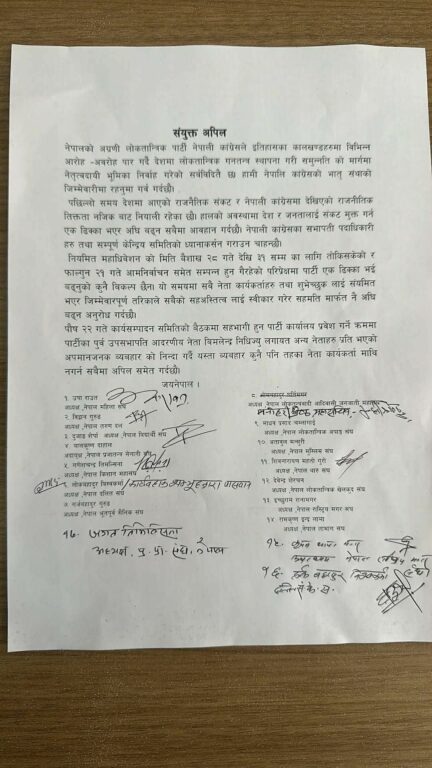 संयुक्त अपिल
नेपालको अग्रणी लोकतान्त्रिक पार्टी नेपाली कांग्रेसले इतिहासका कालखण्डहरुमा विभिन्न
आरोह -अवरोह पार गर्दै देशमा लोकतान्त्रिक गनतन्त्र स्थापना गरी समुन्नति को मार्गमा
नेतृत्वदायी भूमिका निर्वाह गरेको सर्वविदितै छ। हामी नेपालि कांग्रेसको भातृ संघाको
जिम्मेवारीमा रहनुमा गर्व गर्दछौ।
पछिल्लो समय देशमा आएको राजनैतिक संकट र नेपाली कांग्रेसमा देखिएको राजनीतिक
तिक्तता नजिक बाट नियाली रहेका छौ। हालको अवस्थामा देश र जनतालाई संकट मुक्त गर्न
एक ढिक्का भएर अघि बढ्न सबैमा आवहान गर्दछौ। नेपाली कांग्रेसका सभापती पदाधिकारी
हरु तथा सम्पूर्ण केन्द्रिय समितिको ध्यानाकर्सन गराउन चाहन्छौ।
नियमित महाधिवेशन को मिति बैशाख २८ गते देखि ३१ सम्म का लागि तोकिसकेको र
फाल्गुन २१ गते आमनिर्वाचन समेत सम्पन्न हुन गैरहेको परिप्रेक्षमा पार्टी एक ढिक्का भई
बढ्नुको कुनै विकल्प छैन। यो समयमा सबै नेता कार्यकर्ताहरु तथा शुभेच्छुक लाई संयमित
भएर जिम्मेवारपूर्ण तरिकाले सबैको सहअस्तित्व लाई स्वीकार गरेर सहमति मार्फत नै अघि
बढ्न अनुरोध गर्दछौ।
पौष २२ गते कार्यसम्पादन समितिको बैठकमा सहभागी हुन पार्टी कार्यालय प्रवेश गर्ने क्रममा
पार्टीका पुर्व उपसभापति आदरणीय नेता विमलेन्द्र निधिज्यु लगायत अन्य नेताहरु प्रति भएको
अपमानजनक व्यवहार को निन्दा गर्दै यस्ता व्यवहार कुनै पनि तहका नेता कार्यकर्ता माथि
नगर्न सबैमा अपिल समेत गर्दछौ।
जयनेपाल।
१. उषा राउत
अध्यक्ष ,नेपाल महिला संघ
२. विद्वान गुरुङ
अध्यक्ष ,नेपाल तरुण दल
३. दुजाङ शेर्पा अध्यक्ष ,नेपाल विद्यार्थी संघ
४. पानकृष्ण दाहाल
अध्यक्ष, नेपाल प्रजातन्त्र सेनानी संघ
५. नगेशचन्द्र तिमल्सिना
अध्यक्ष ,नेपाल किसान महासंघ
लोकबहादुर विश्वकर्मा
अध्यक्ष ,नेपाल दलित संघ
७. गर्जबहादुर गुरुङ
अध्यक्ष ,नेपाल भुतपूर्व सैनिक संघ
८.
अध्यक्ष ,नेपाल लोकतन्त्रवादी आदिवासी जनजाती महासंघ
९. माधव प्रसाद चम्लागाई
अध्यक्ष ,नेपाल लोकतान्त्रिक अपाङ्ग संघ
१० अताबुल मन्सुरी
अध्यक्ष ,नेपाल मुस्लिम संघ
११ शिवनारायण महतो थुरी
अध्यक्ष ,नेपाल थारु संघ
१२ देवेन्द्र शेरचन
अध्यक्ष ,नेपाल लोकतान्त्रिक खेलकुद संघ
१३ इच्छुराम रानामगर
अध्यक्ष ,नेपाल राष्ट्रिय मगर संघ
१४ रामकृष्ण इन्द्र लामा
अध्यक्ष ,नेपाल तामाङ संघ